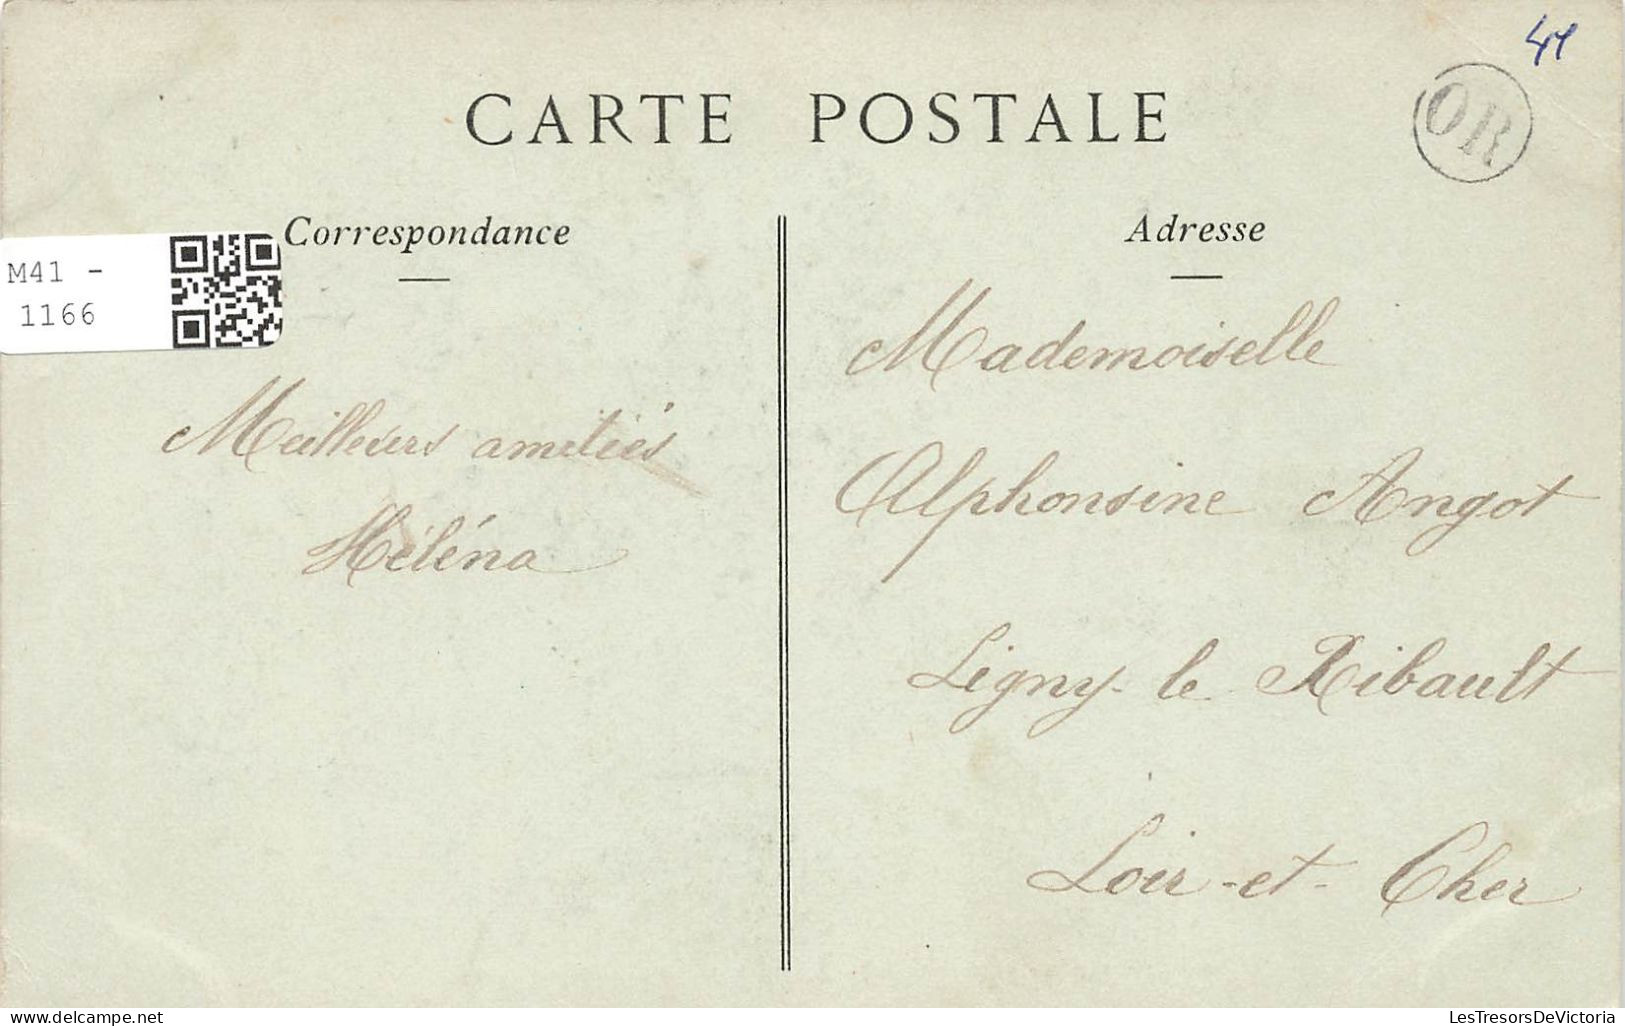 41
CARTE POSTALE
OR
Correspondance
Adresse
M41 -
1166
Mademoiselle
Meilleurs amitiés
Alphonsine Angot
Héléna
Ligny-le Ribault
Loir-et-Cher
delcampe.net
LesTresorsDeVictoria